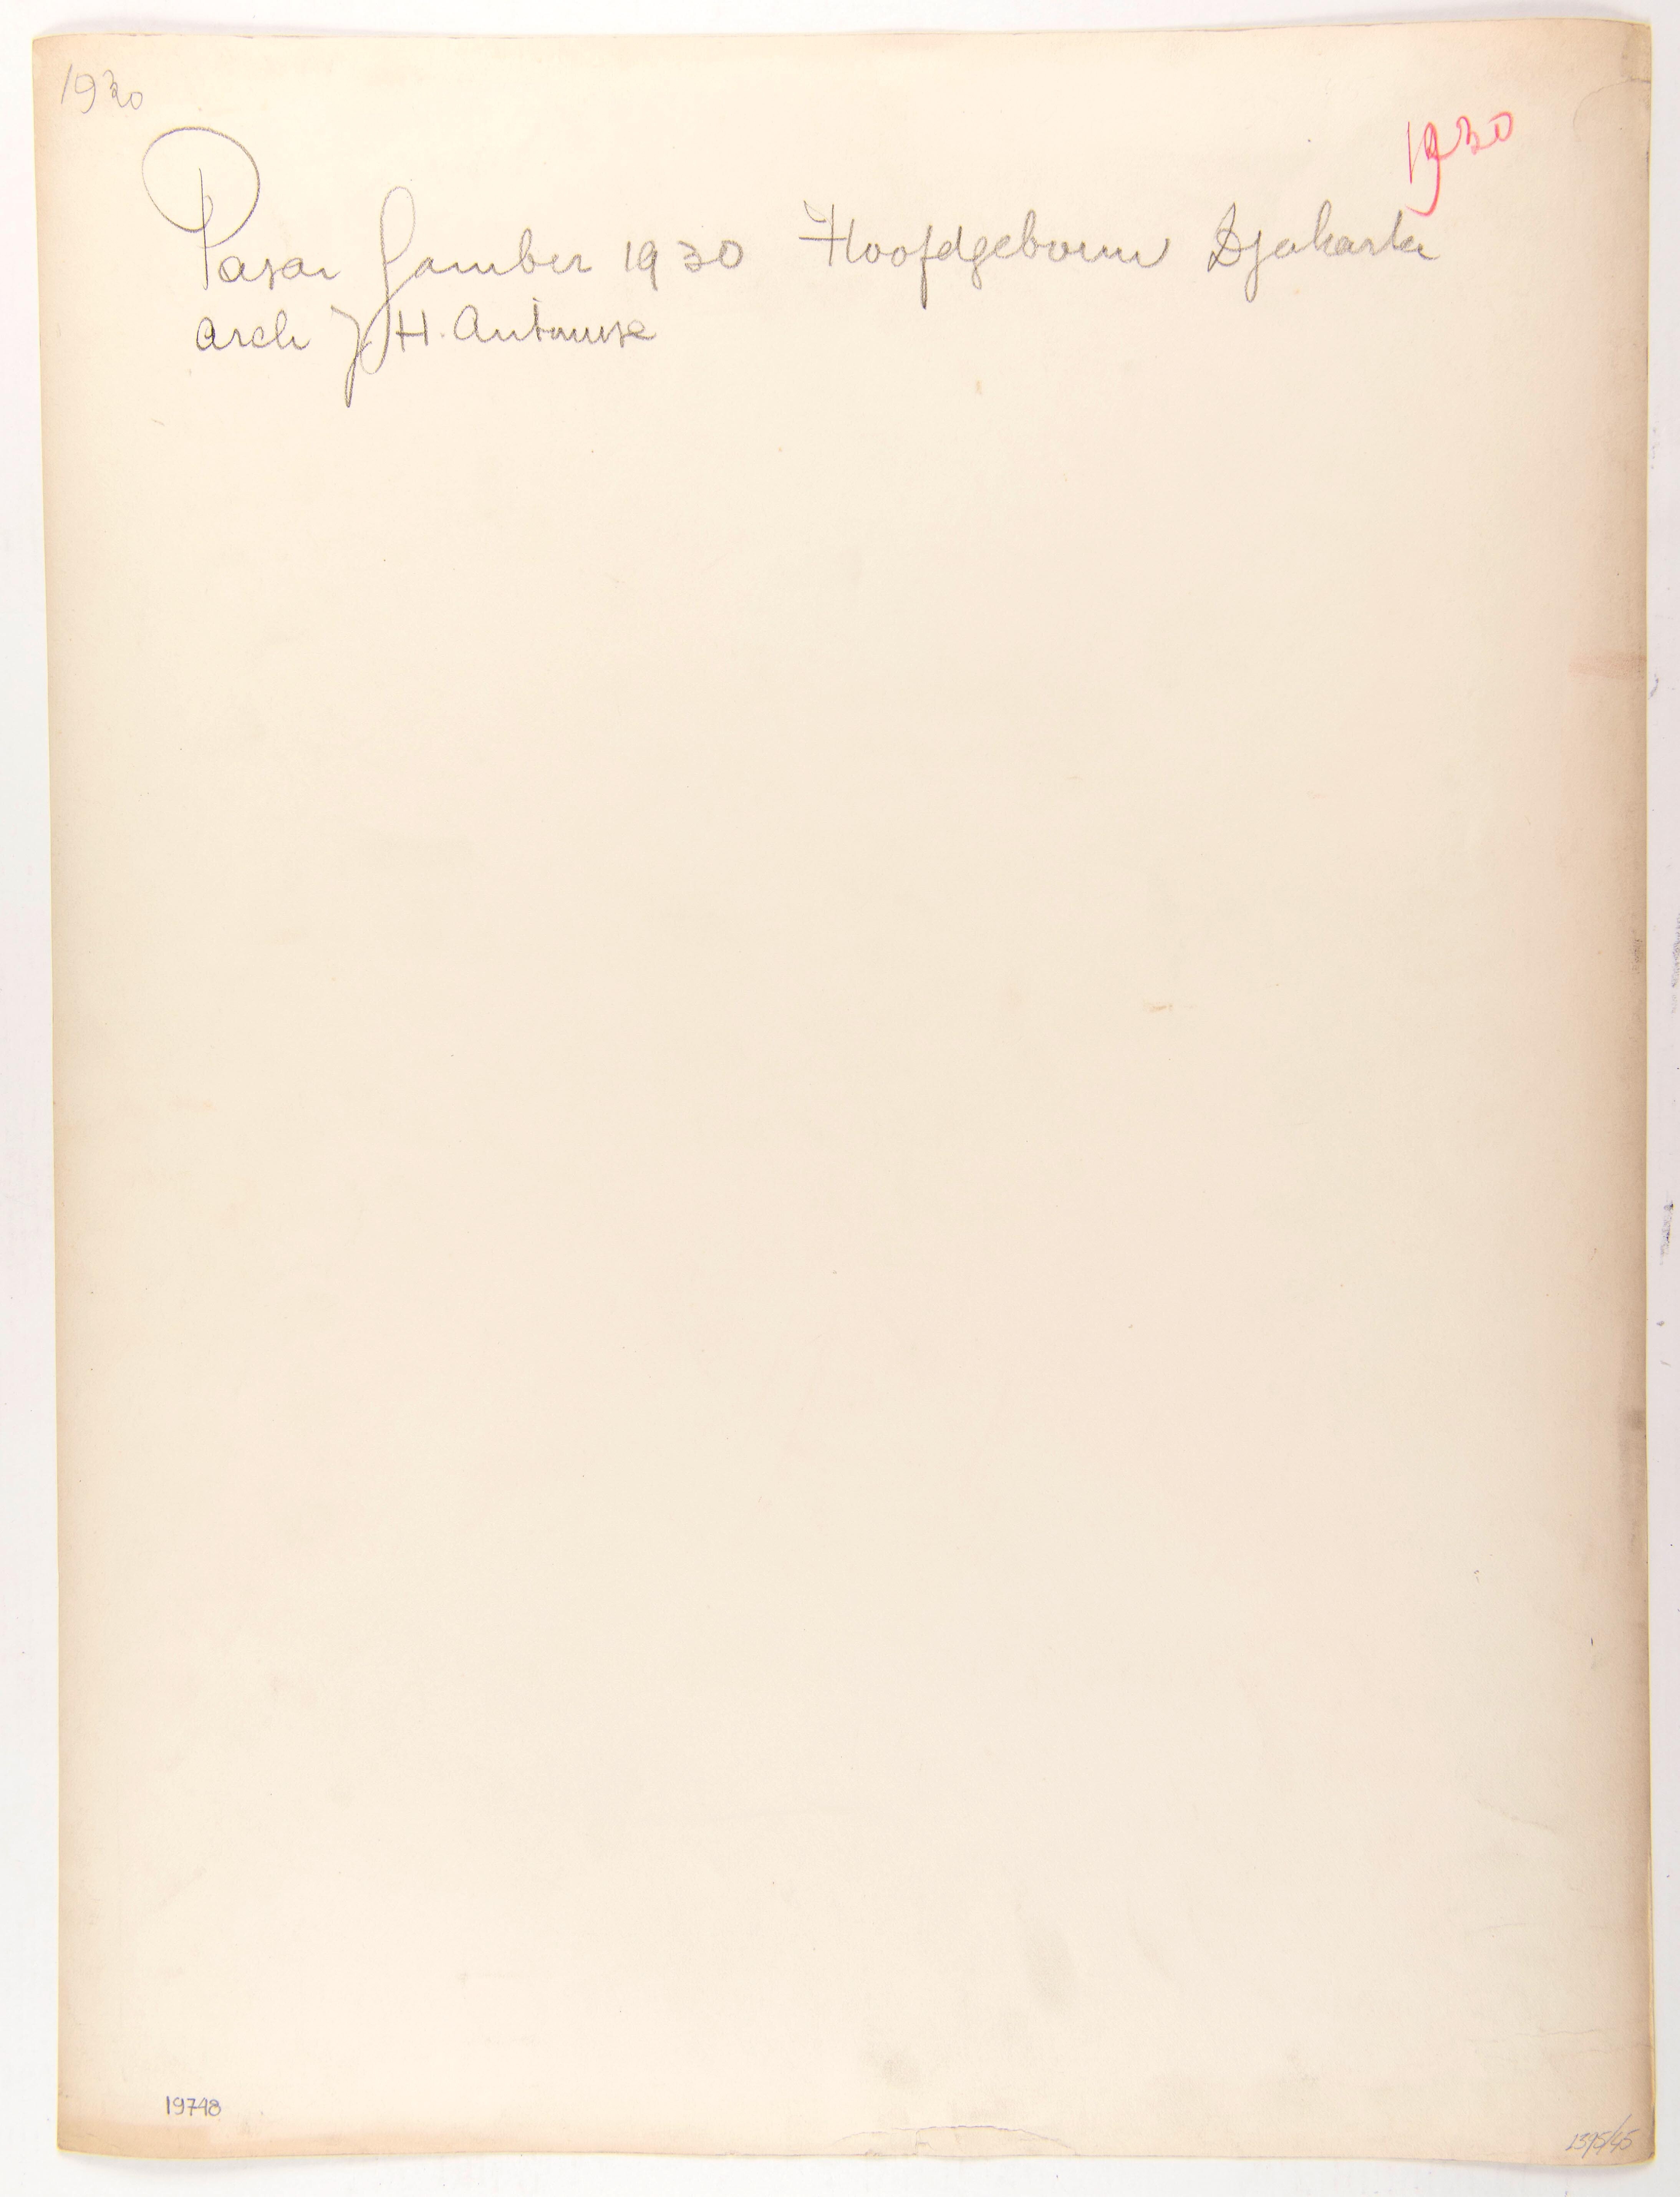 1930
1930
Pasar Gambir 1930 Hoofdgebouw Djakarta
arch J H. Antonisse
19748
1395/45